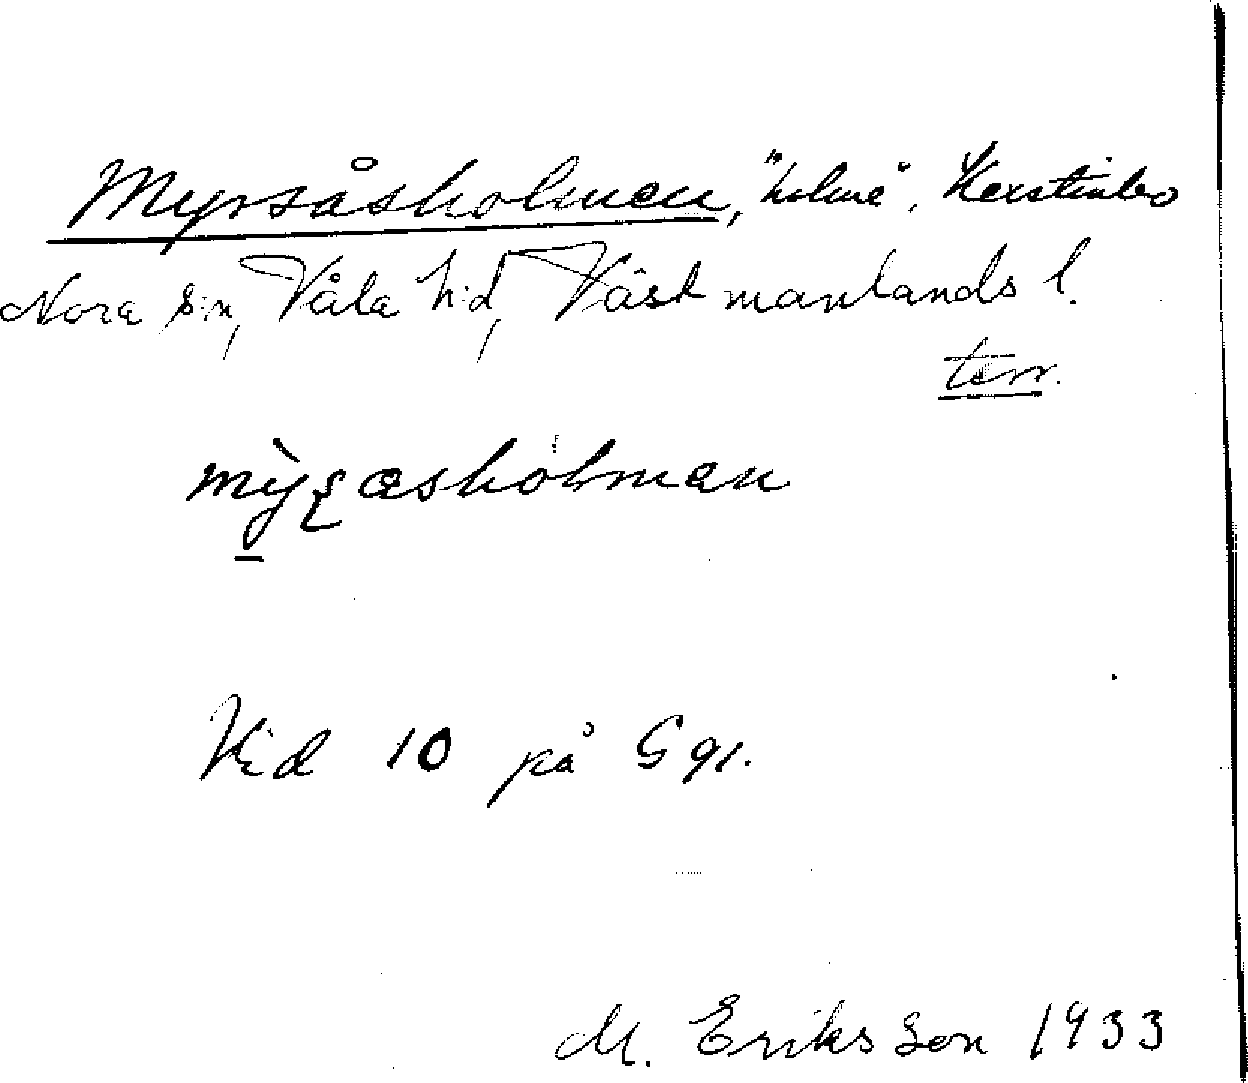 Myrsåsholmen, "holme", Kerstinbo
Nora s:n, Våla h:d, Västmanlands l.
terr.
Vid 10 på Ggr.
M. Eriksson 1933